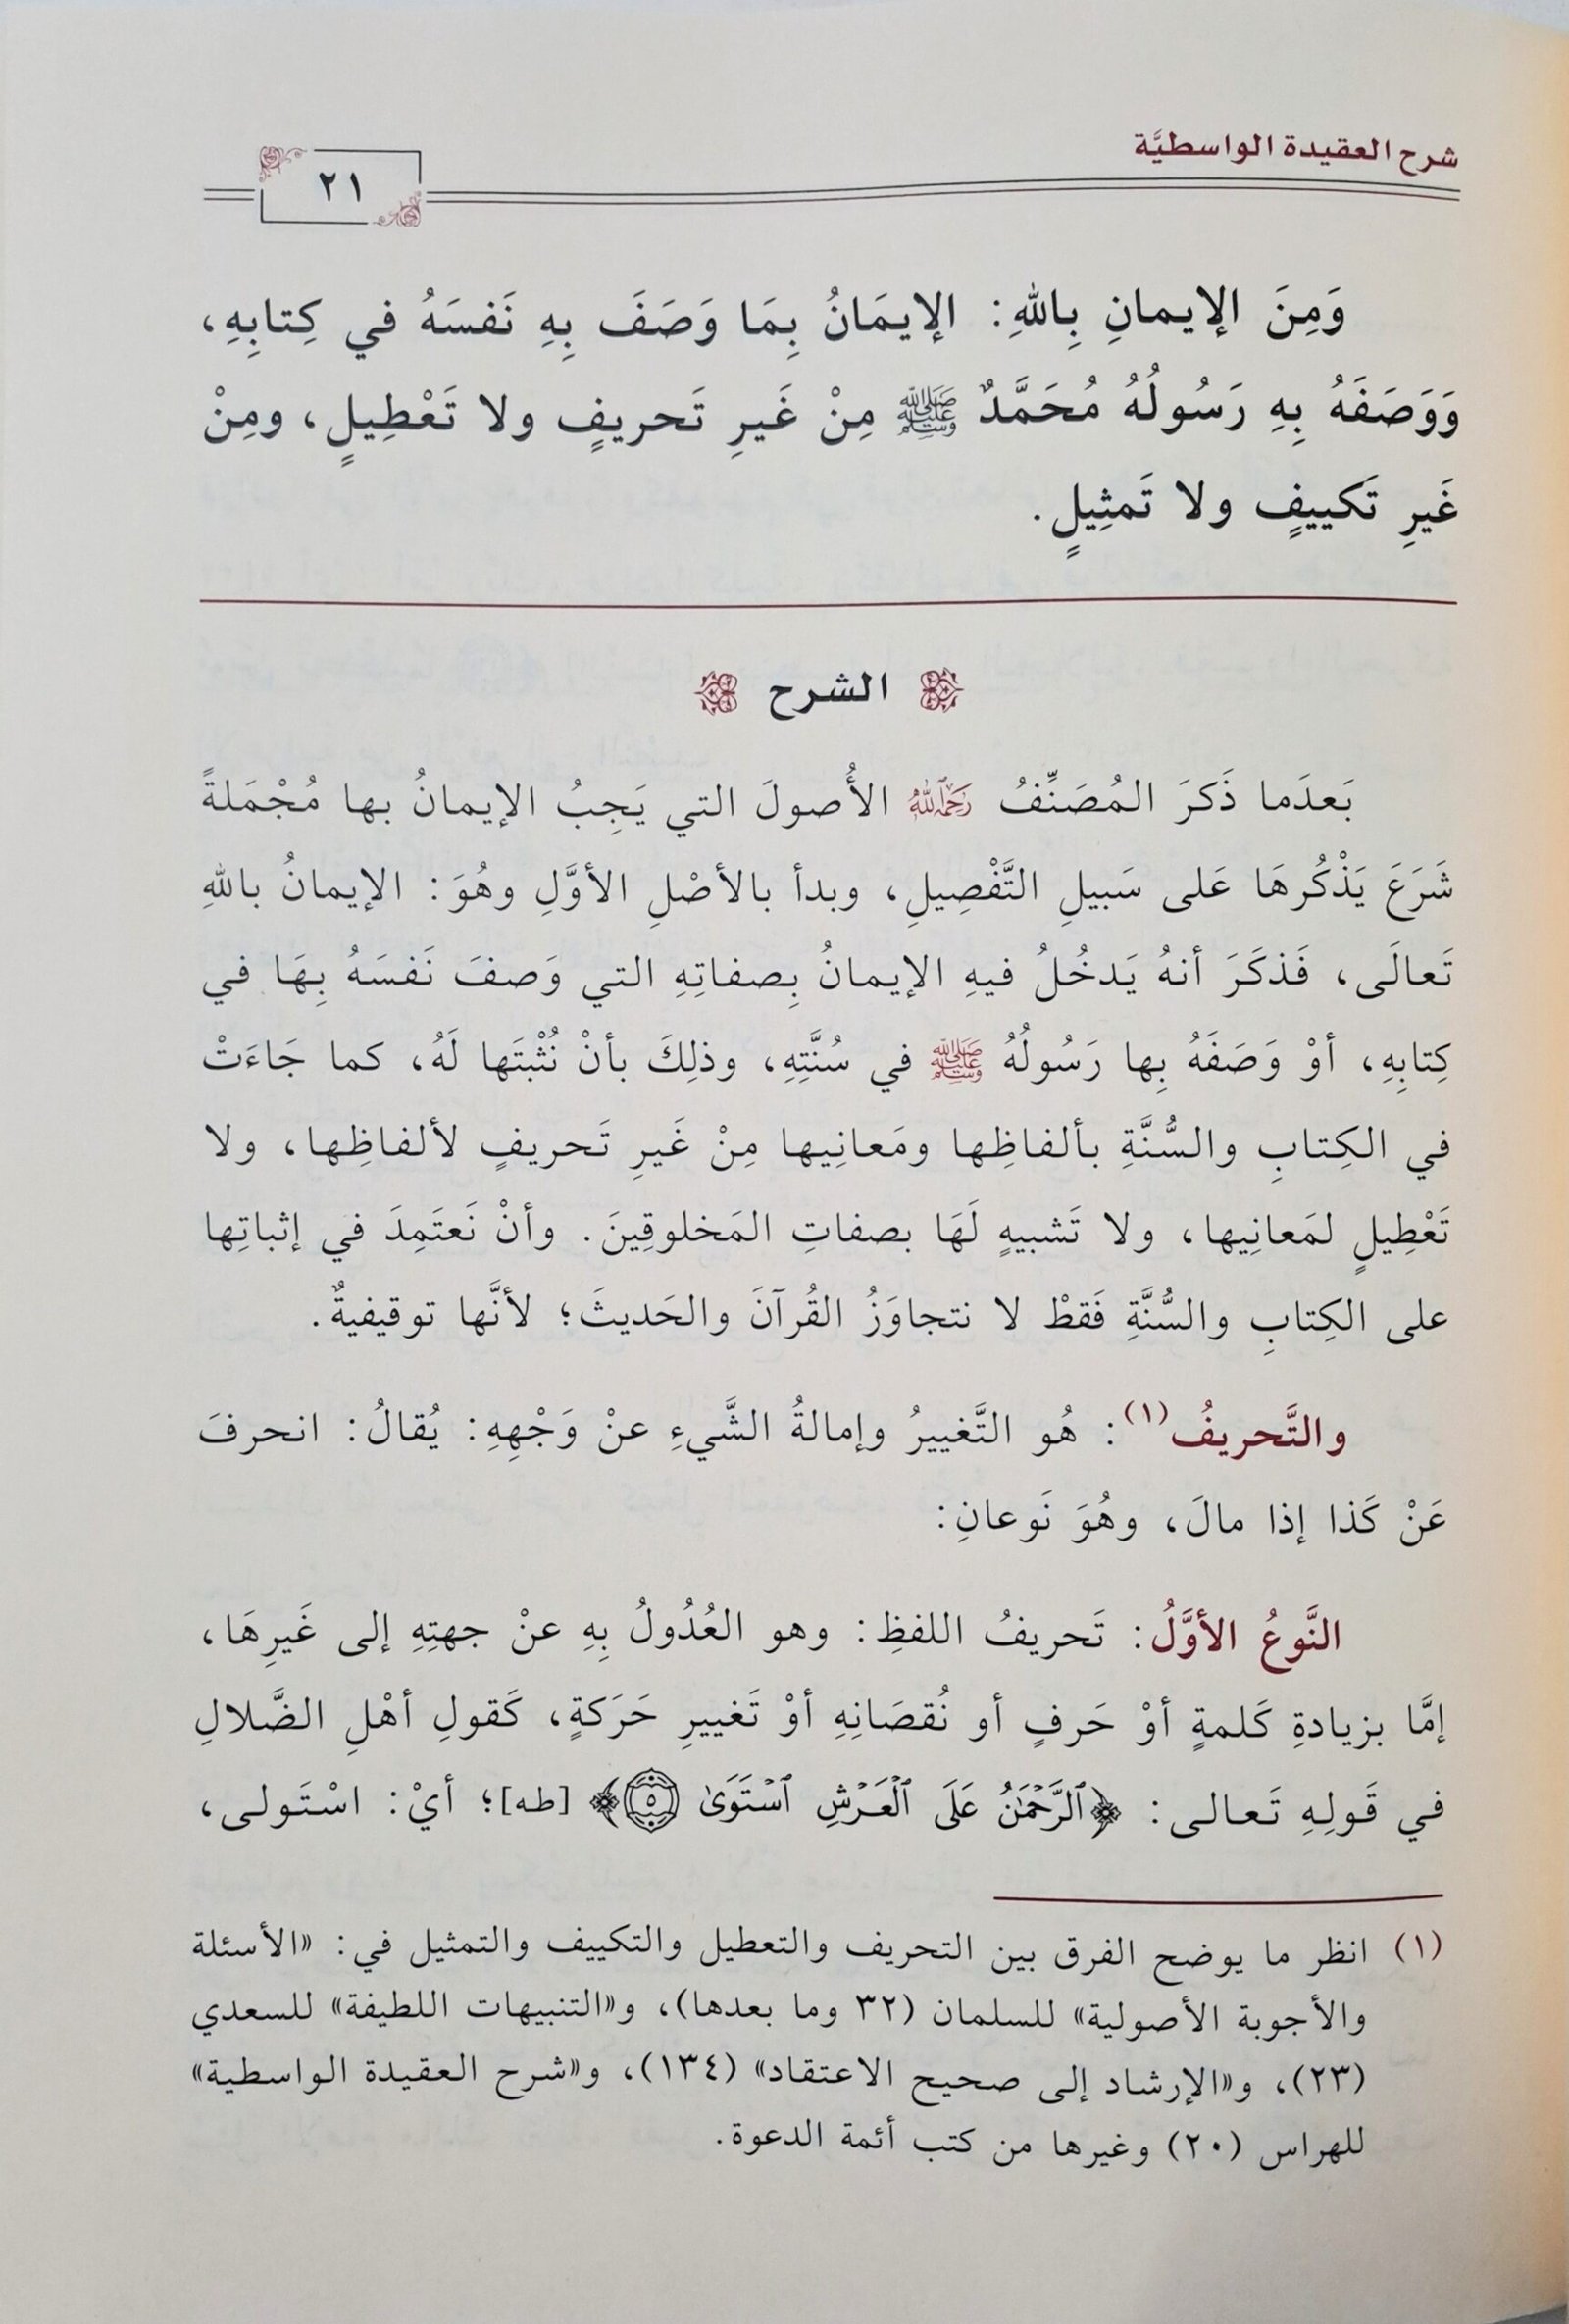 شرح العقيدة الواسطيَّة
٢١
وَمِنَ الإيمانِ بِاللهِ: الإيمَانُ بِمَا وَصَفَ بِهِ نَفسَهُ في كِتابِهِ،
وَوَصَفَهُ بِهِ رَسُولُهُ مُحَمَّدٌ ﷺ مِنْ غَيرِ تَحريفٍ ولا تَعْطِيلٍ، ومِنْ
غَيرِ تَكييفٍ ولا تَمثِيلٍ.
الشرح
بَعدَما ذَكرَ المُصَنِّفُ رَحِمَهُ اللهُ الأُصولَ التي يَجِبُ الإيمانُ بها مُجْمَلةً
شَرَعَ يَذْكُرهَا عَلى سَبيلِ التَّفْصِيلِ، وبدأ بالأصْلِ الأوَّلِ وهُوَ: الإيمانُ باللهِ
تَعالَى، فَذكَرَ أنهُ يَدخُلُ فيهِ الإيمانُ بِصفاتِهِ التي وَصفَ نَفسَهُ بِهَا في
كِتابِهِ، أوْ وَصَفَهُ بِها رَسُولُهُ ﷺ في سُنَّتِهِ، وذلِكَ بأنْ نُثْبتَها لَهُ، كما جَاءَتْ
في الكِتابِ والسُّنَّةِ بألفاظِها ومَعانِيها مِنْ غَيرِ تَحريفٍ لألفاظِها، ولا
تَعْطِيلٍ لمَعانِيها، ولا تَشبيهٍ لَهَا بصفاتِ المَخلوقِينَ. وأنْ نَعتَمِدَ في إثباتِها
على الكِتابِ والسُّنَّةِ فَقطْ لا نتجاوَزُ القُرآنَ والحَديثَ؛ لأنَّها توقيفيةٌ.
والتَّحريفُ(١): هُو التَّغييرُ وإمالةُ الشَّيءِ عنْ وَجْهِهِ: يُقالُ: انحرفَ
عَنْ كَذا إذا مالَ، وهُوَ نَوعانِ:
النَّوعُ الأوَّلُ: تَحريفُ اللفظِ: وهو العُدُولُ بِهِ عنْ جهتِهِ إلى غَيرِهَا،
إمَّا بزيادةِ كَلمةٍ أوْ حَرفٍ أو نُقصَانِهِ أوْ تَغييرِ حَرَكةٍ، كَقولِ أهْلِ الضَّلالِ
في قَولِهِ تَعالى: ﴿ٱلرَّحْمَٰنُ عَلَى ٱلْعَرْشِ ٱسْتَوَىٰ ٥﴾ [طه]؛ أيْ: اسْتَولى،
(١) انظر ما يوضح الفرق بين التحريف والتعطيل والتكييف والتمثيل في: «الأسئلة
والأجوبة الأصولية» للسلمان (٣٢ وما بعدها)، و«التنبيهات اللطيفة» للسعدي
(٢٣)، و«الإرشاد إلى صحيح الاعتقاد» (١٣٤)، و«شرح العقيدة الواسطية»
للهراس (٢٠) وغيرها من كتب أئمة الدعوة.